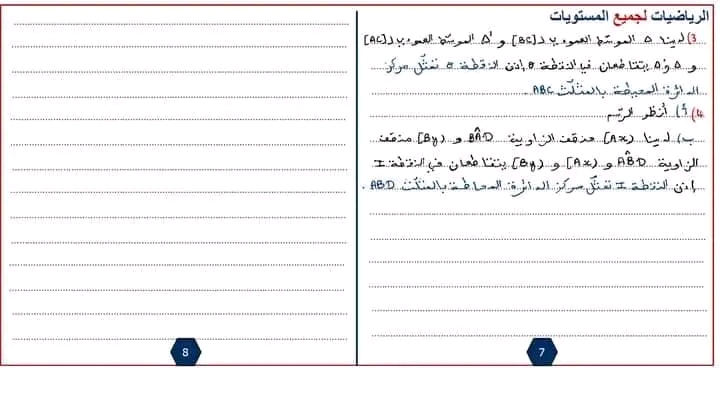 الرياضيات لجميع المستويات
3) لدينا Δ الموسط العمودي لـ [BC] و Δ' الموسط العمودي لـ [AC]
و Δ و Δ' يتقاطعان في النقطة O إذن النقطة O تمثل مركز
الدائرة المحيطة بالمثلث ABC .
4) أ) أنظر الرسم
ب) لدينا [Ax) منصف الزاوية BÂD و [By) منصف
الزاوية AB̂D و [Ax) و [By) يتقاطعان في النقطة I
إذن النقطة I تمثل مركز الدائرة المحاطة بالمثلث ABD .
7
8